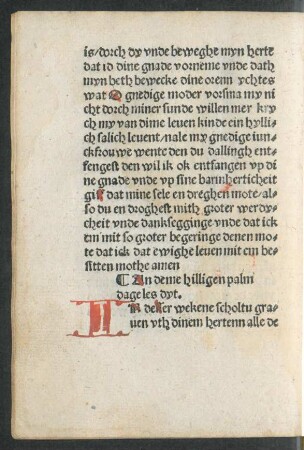 is/dorch dy vnde beweghe myn herte
dat id dine gnade vorneme vnde dath
myn beth bewecke dine orenn ychtes
wat O gnedige moder vorsma my ni
cht dorch miner sunde willen mer kry
ch my van dime leuen kinde ein hylli
ch salich leuent/nale my gnedige iunc
kfrouwe wente den du dallingh ent
fengest den wil ik ok entfangen vp di
ne gnade vnde vp sine barmherticheit
gif dat mine sele en dreghen mote/al
so du en droghest mith groter werdy
cheit vnde danksegginge vnde dat ick
em mit so groter begeringe denen mo
te dat ick dat ewighe leuen mit em be
sitten mothe amen
¶ An deme hilligen palm
dage les dyt.
IN desser wekene scholtu gra
uen vth dinem hertenn alle de